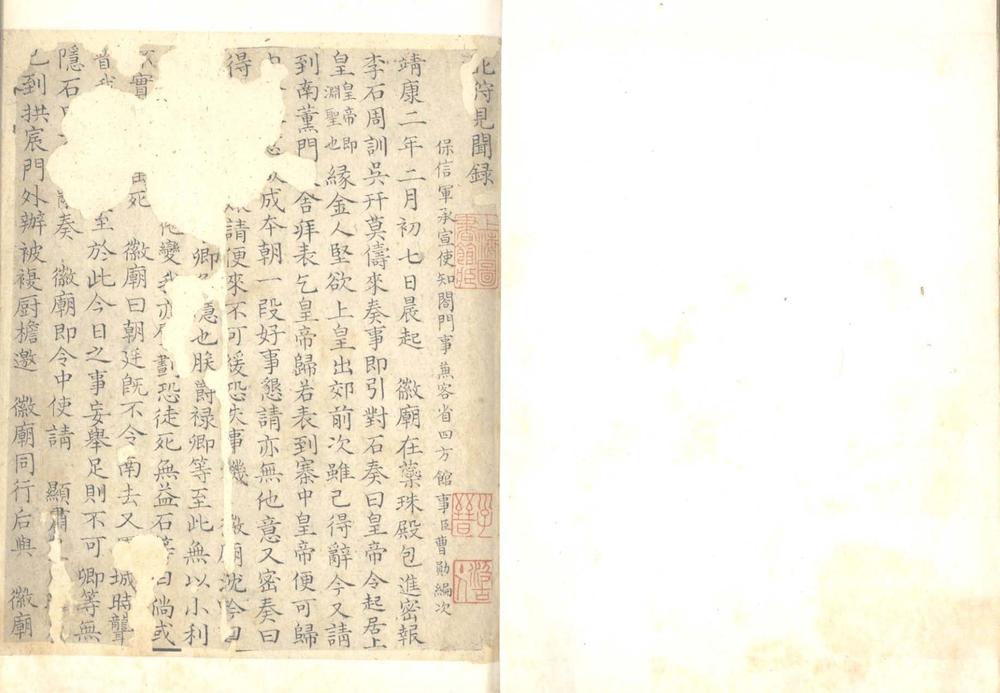 北狩見聞録
保信軍承宣使知閤門事兼客省四方館事臣曹勛編次
靖康二年二月初七日晨起 徽廟在蘂珠殿包進密報
李石周訓吳幵莫儔來奏事即引對石奏曰皇帝令起居上
皇皇帝即淵聖也緣金人堅欲上皇出郊前次雖已得辭今又請
到南薰門 舍拜表乞皇帝歸若表到寨中皇帝便可歸
成夲朝一段好事懇請亦無他意又密奏曰
得 請便來不可緩恐失事機 徽廟沈吟曰
卿 隱也朕爵禄卿等至此無以小利
變我亦 劃恐徒死無益石等曰倘或
不實 死 徽廟曰朝廷既不令南去又 城時聾
首我 至於此今日之事妄舉足則不可卿等無
隱石 奏 徽廟即令中使請 顯肅
已到拱宸門外辦被複厨檐邀 徽廟同行后與 徽廟
上海圖書館藏